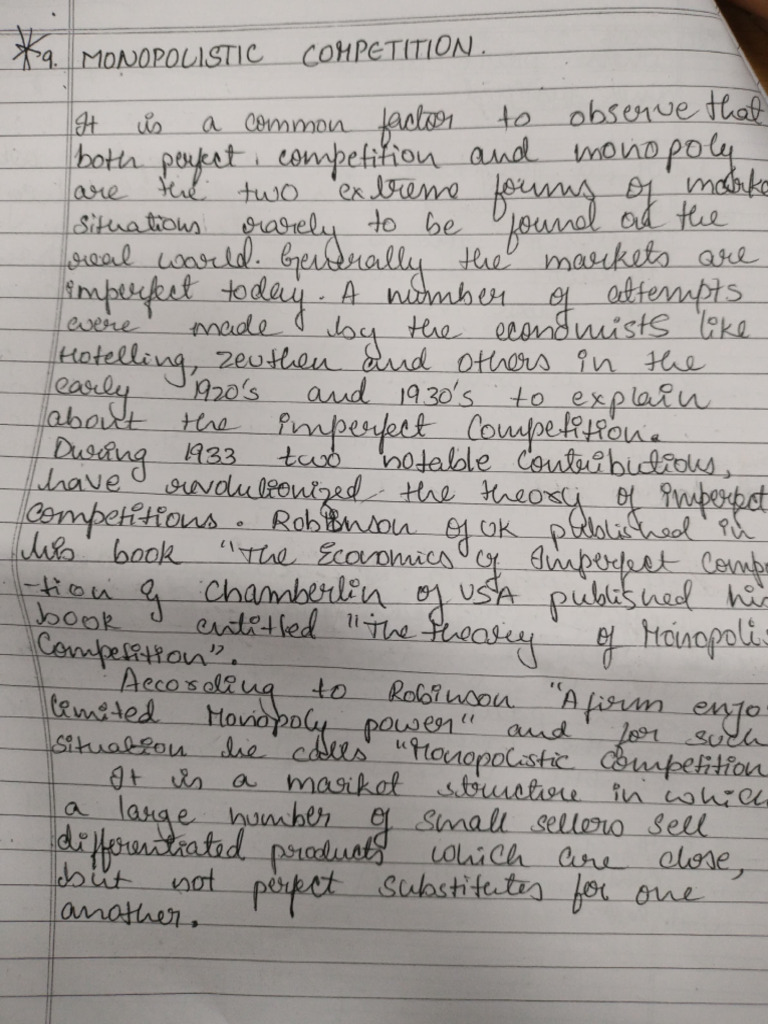 *9. MONOPOLISTIC COMPETITION.
It is a common factor to observe that
both perfect competition and monopoly
are the two extreme forms of marke
situations rarely to be found at the
real world. Generally the markets are
imperfect today. A number of attempts
were made by the economists like
Hotelling, Zeuthen and others in the
early 1920's and 1930's to explain
about the imperfect Competition.
During 1933 two notable Contributions,
have revolutionized the theory of imperfect
competitions. Robinson of UK published in
his book "The Economics of Imperfect Comp
-tion & Chamberlin of USA published his
book entitled "The theory of Monopolis
Competition".
According to Robinson "A firm enjo
limited Monopoly power" and for such
situation he calls "Monopolistic Competition
It is a market structure in which
a large number of small sellers sell
differentiated products which are close,
but not perfect substitutes for one
another.